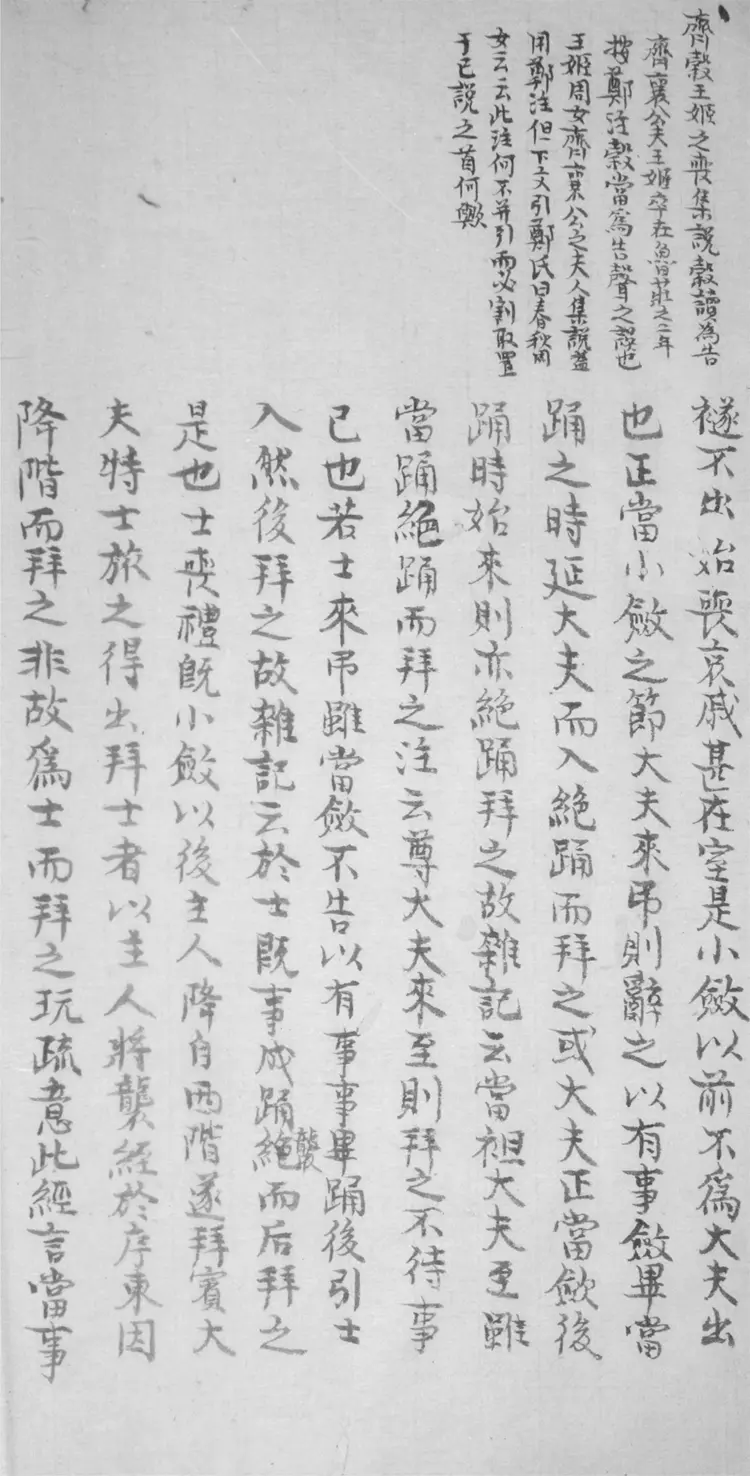 齊穀王姬之喪集說穀讀為告
齊襄公夫王姬卒在魯莊之二年
按鄭注穀當爲告聲之誤也
王姬周女齊襄公之夫人集說蓋
用鄭注但下文引鄭氏曰春秋周
女云云此注何不并引而必割取置
于已說之首何歟
襚不出始喪哀戚甚在室是小斂以前不爲大夫出
也正當小斂之節大夫來吊則辭之以有事斂畢當
踊之時延大夫而入絕踊而拜之或大夫正當斂後
踊時始來則亦絕踊拜之故雜記云當袒大夫至雖
當踊絕踊而拜之注云尊大夫來至則拜之不待事
已也若士來吊雖當斂不告以有事事畢踊後引士
入然後拜之故雜記云於士既事成踊絕襲而后拜之
是也士喪禮既小斂以後主人降自西階遂拜賓大
夫特士旅之得出拜士者以主人將襲絰於序東因
降階而拜之非故爲士而拜之玩疏意此經言當事